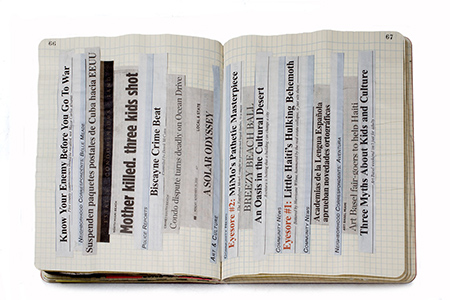 66
Know Your Enemy Before You Go To War
NEIGHBORHOOD CORRESPONDENTS: BELLE MEADE
Suspenden paquetes postales de Cuba hacia EEUU
Mother killed, three kids shot
POLICE REPORTS
Biscayne Crime Beat
Condo dispute turns deadly on Ocean Drive
A SOLAR ODYSSEY
ART & CULTURE
67
Eyesore #2: MiMo's Pathetic Masterpiece
BREEZY BEACH BALL
An Oasis in the Cultural Desert
COMMUNITY NEWS
Eyesore #1: Little Haiti's Hulking Behemoth
COMMUNITY NEWS
Academias de la Lengua Española
aprueban novedades ortográficas
NEIGHBORHOOD CORRESPONDENTS: AVENTURA
Art Basel fair-goers to help Haiti
Three Myths About Kids and Culture